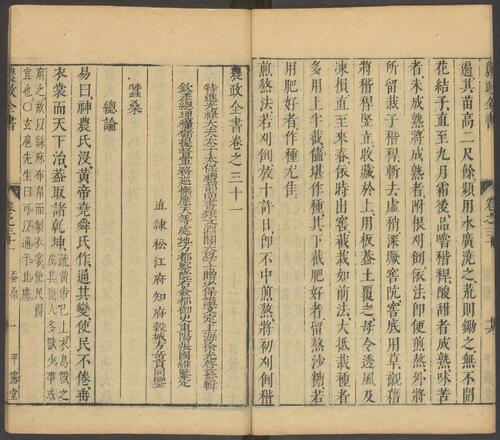 遍其苗高二尺餘頻用水廣澆之荒則鋤之無不開
花結子直至九月霜後品嘗稭稈酸甜者成熟味苦
者未成熟將成熟者附根刈倒依法即便煎熬外將
所留栽子稭稈斬去虛稍深撅窖阬窖底用草襯藉
將稭稈竪立收藏於上用板蓋土覆之毋令透風及
凍損直至來春依時出窖截栽如前法大抵栽種者
多用上半截儘堪作種其下截肥好者留熬沙糖若
用肥好者作種尤佳
煎熬法若刈倒放十許日即不中煎熬將初刈倒稭
農政全書卷之三十一
特進光祿大夫太子太保禮部尚書兼文淵閣大學士贈少保諡文定上海徐光啓纂輯
欽差總理糧儲提督軍務巡撫應天等處地方都察院右僉都御史東陽張國維鑒定
直隸松江府知府穀城方岳貢同鑒
蠶桑
總論
易曰神農氏沒黃帝堯舜氏作通其變使民不倦垂
衣裳而天下治蓋取諸乾坤
疏黃帝已上衣鳥獸之
皮其後人多獸少事或
窮乏故以絲麻布帛而製衣裳使民得
宜也○玄扈先生曰可以通于北虜
農政全書
卷之三十一
蠶桑
一
平露堂